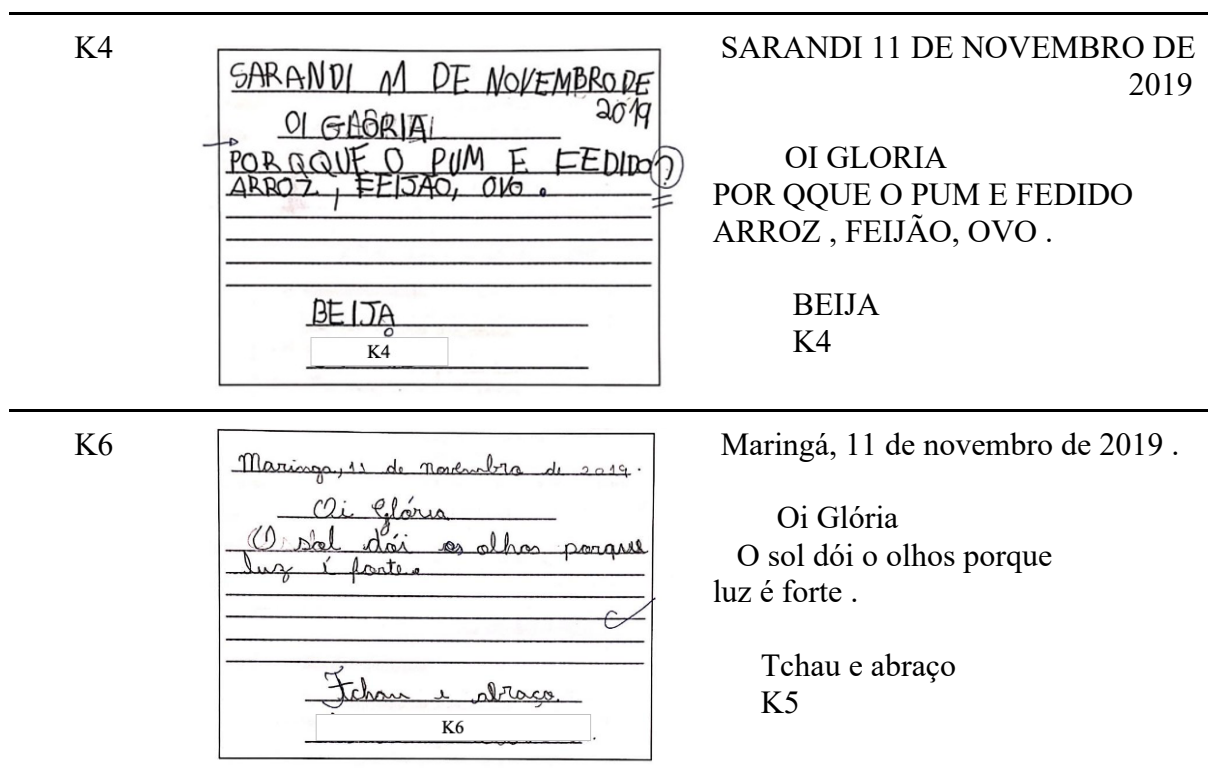 K4
SARANDI 11 DE NOVEMBRO DE
2019
OI GLORIA
POR QQUE O PUM E FEDIDO?
ARROZ, FEIJÃO, OVO.
BEIJA
K4
SARANDI 11 DE NOVEMBRO DE
2019
OI GLORIA
POR QQUE O PUM E FEDIDO
ARROZ , FEIJÃO, OVO .
BEIJA
K4
K6
Maringa, 11 de novembro de 2019.
Oi Glória
O sol dói os olhos porque
luz é forte.
Tchau e abraço.
K6
Maringá, 11 de novembro de 2019 .
Oi Glória
O sol dói o olhos porque
luz é forte .
Tchau e abraço
K5